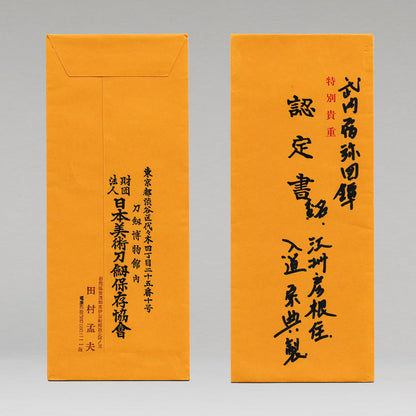 東京都渋谷区代々木四丁目二十五番十号
刀劔博物館内
財団法人 日本美術刀劔保存協會
田村孟夫
特別貴重
認定書
銘、江州彦根住
入道宗典製